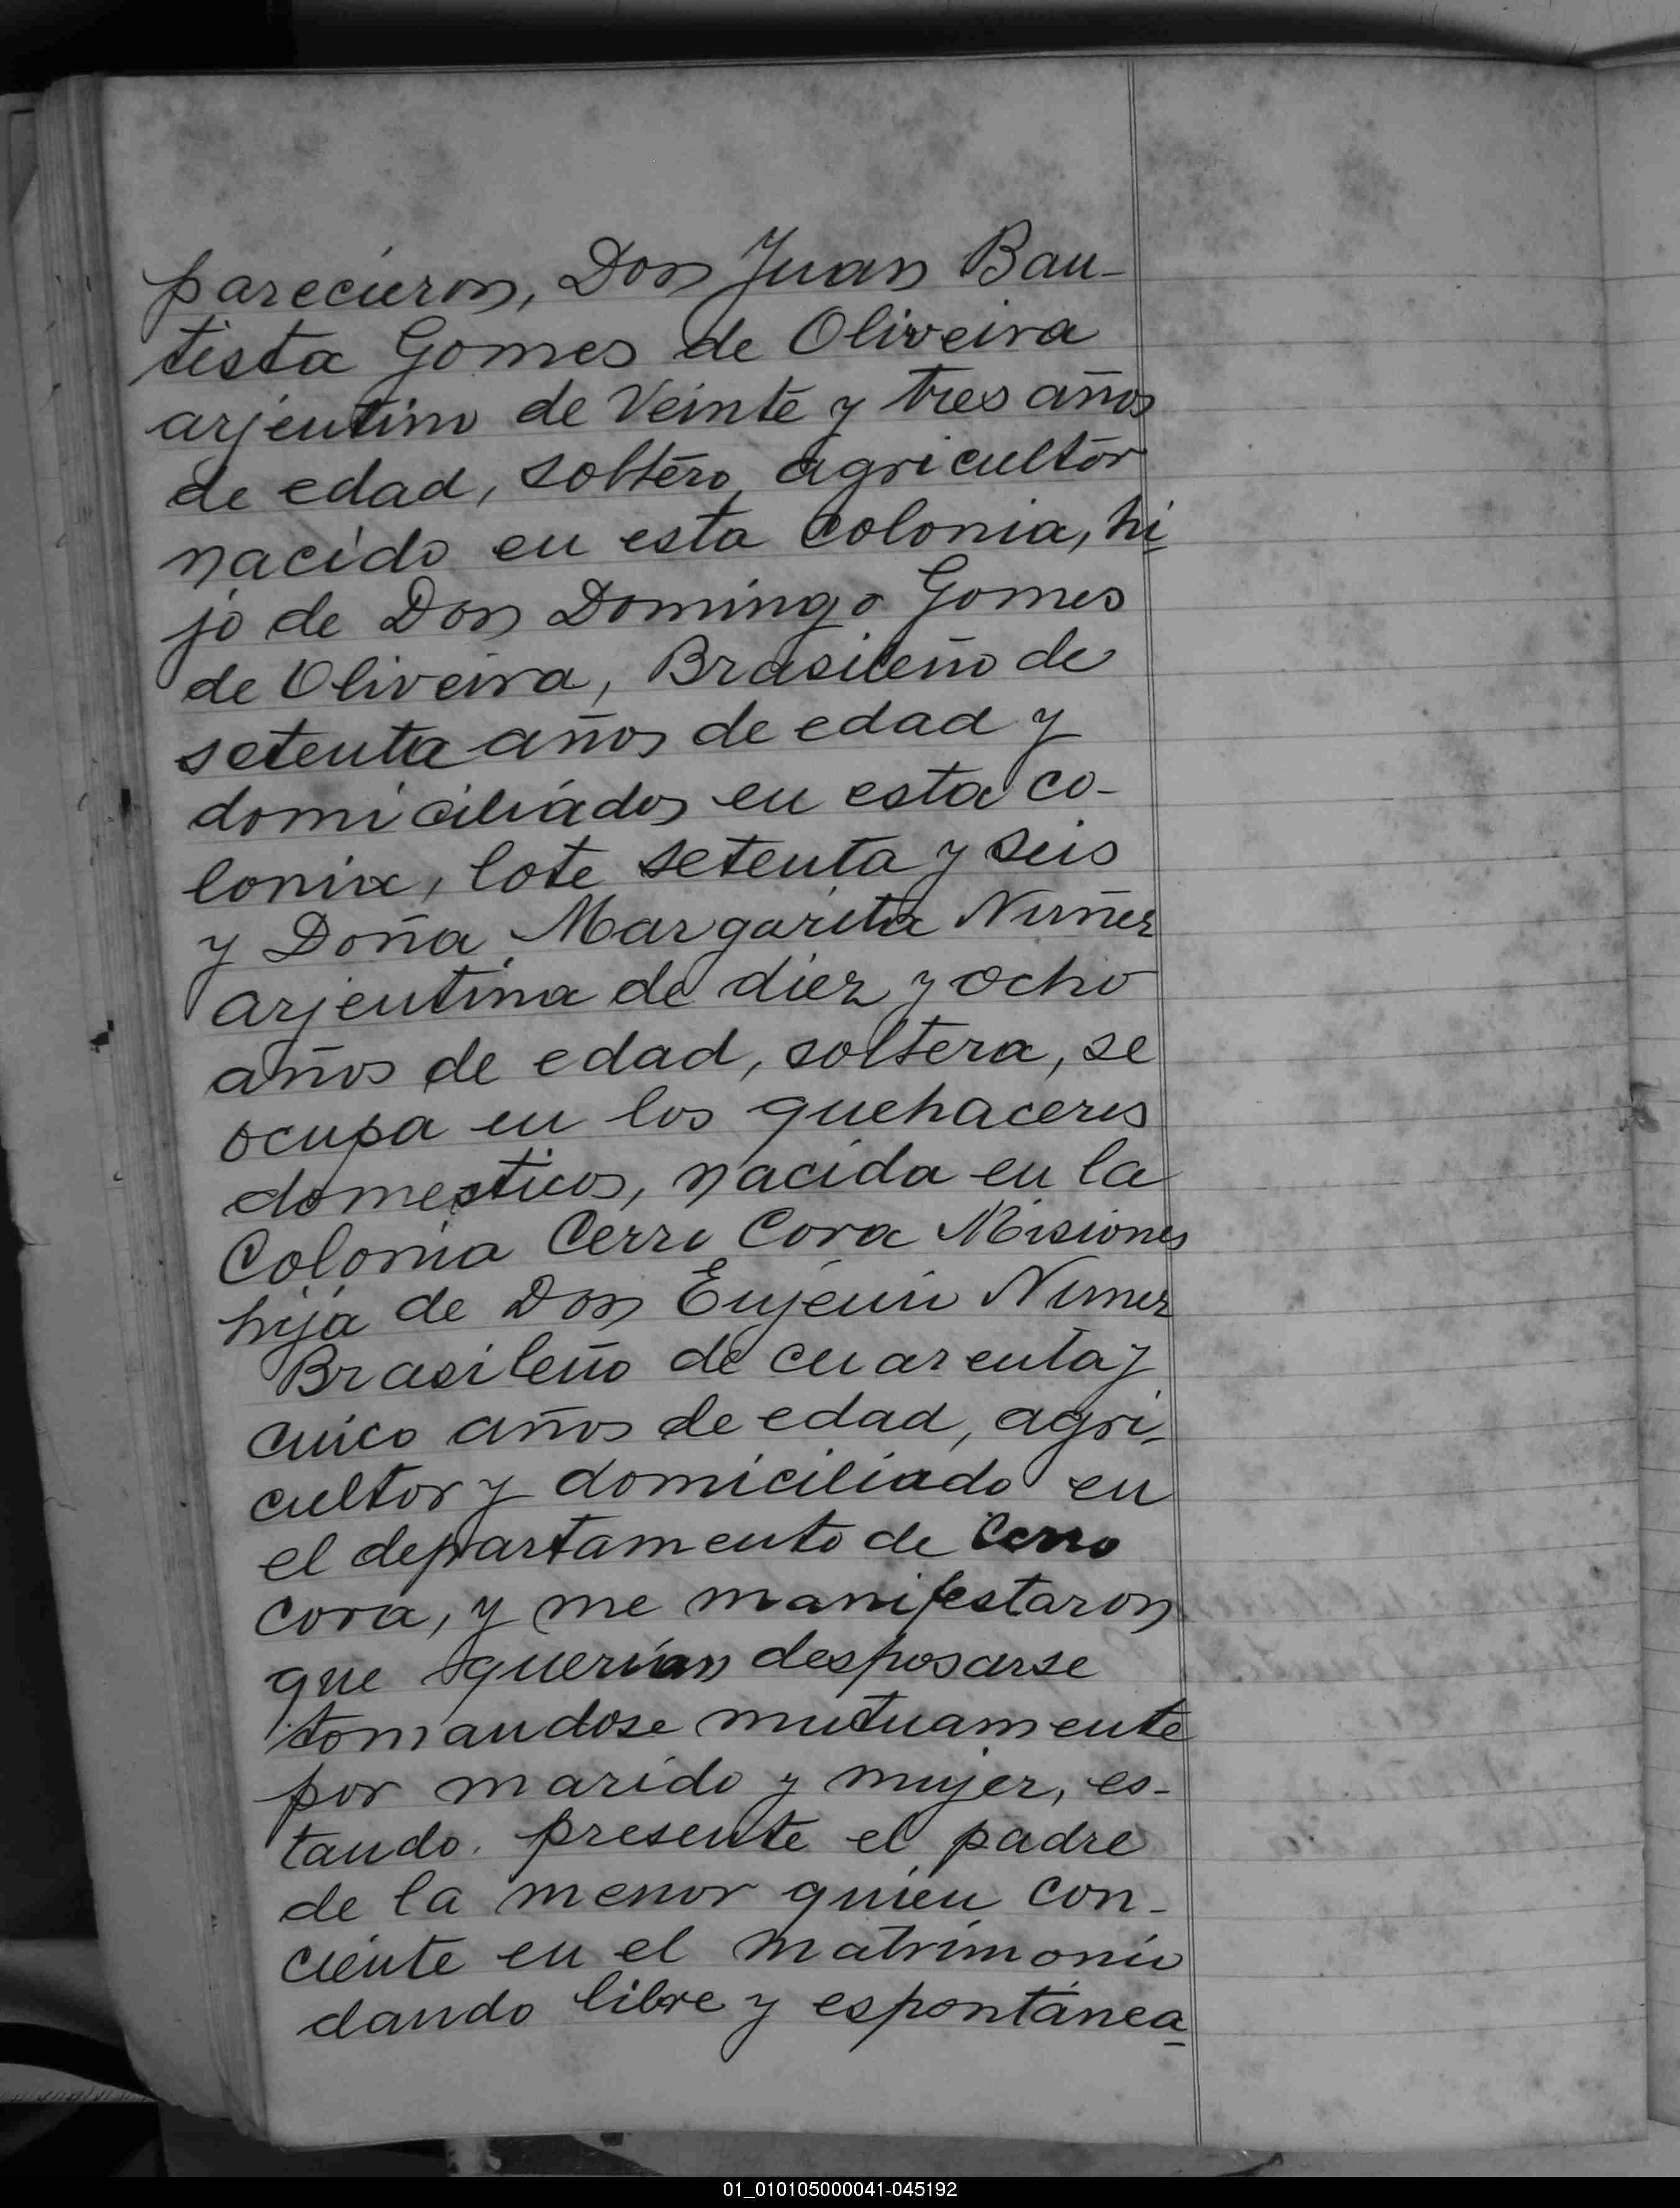 parecieron, Don Juan Bau-
tista Gomes de Oliveira
arjentino de Veinte y tres años
de edad, soltero, agricultor
nacido en esta Colonia, hi-
jo de Don Domingo Gomes
de Oliveira, Brasileño de
setenta años de edad y
domiciliados en esta co-
lonia, lote setenta y seis
y Doña Margarita Nuñez
arjentina de diez y ocho
años de edad, soltera, se
ocupa en los quehaceres
domesticos, nacida en la
Colonia Cerro Cora Misiones
hija de Don Eujenio Nunez
Brasileño de cuarenta y
cuico años de edad, agri-
cultor y domiciliado en
el departamento de Cerro
Cora, y me manifestaron
que querian desposarse
tomandose mutuamente
por marido y mujer, es-
tando presente el padre
de la menor quien con-
ciente en el matrimonio
dando libre y espontánea-
01_010105000041-045192